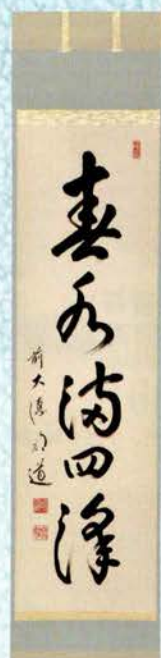 春水満四澤
前大徳 道